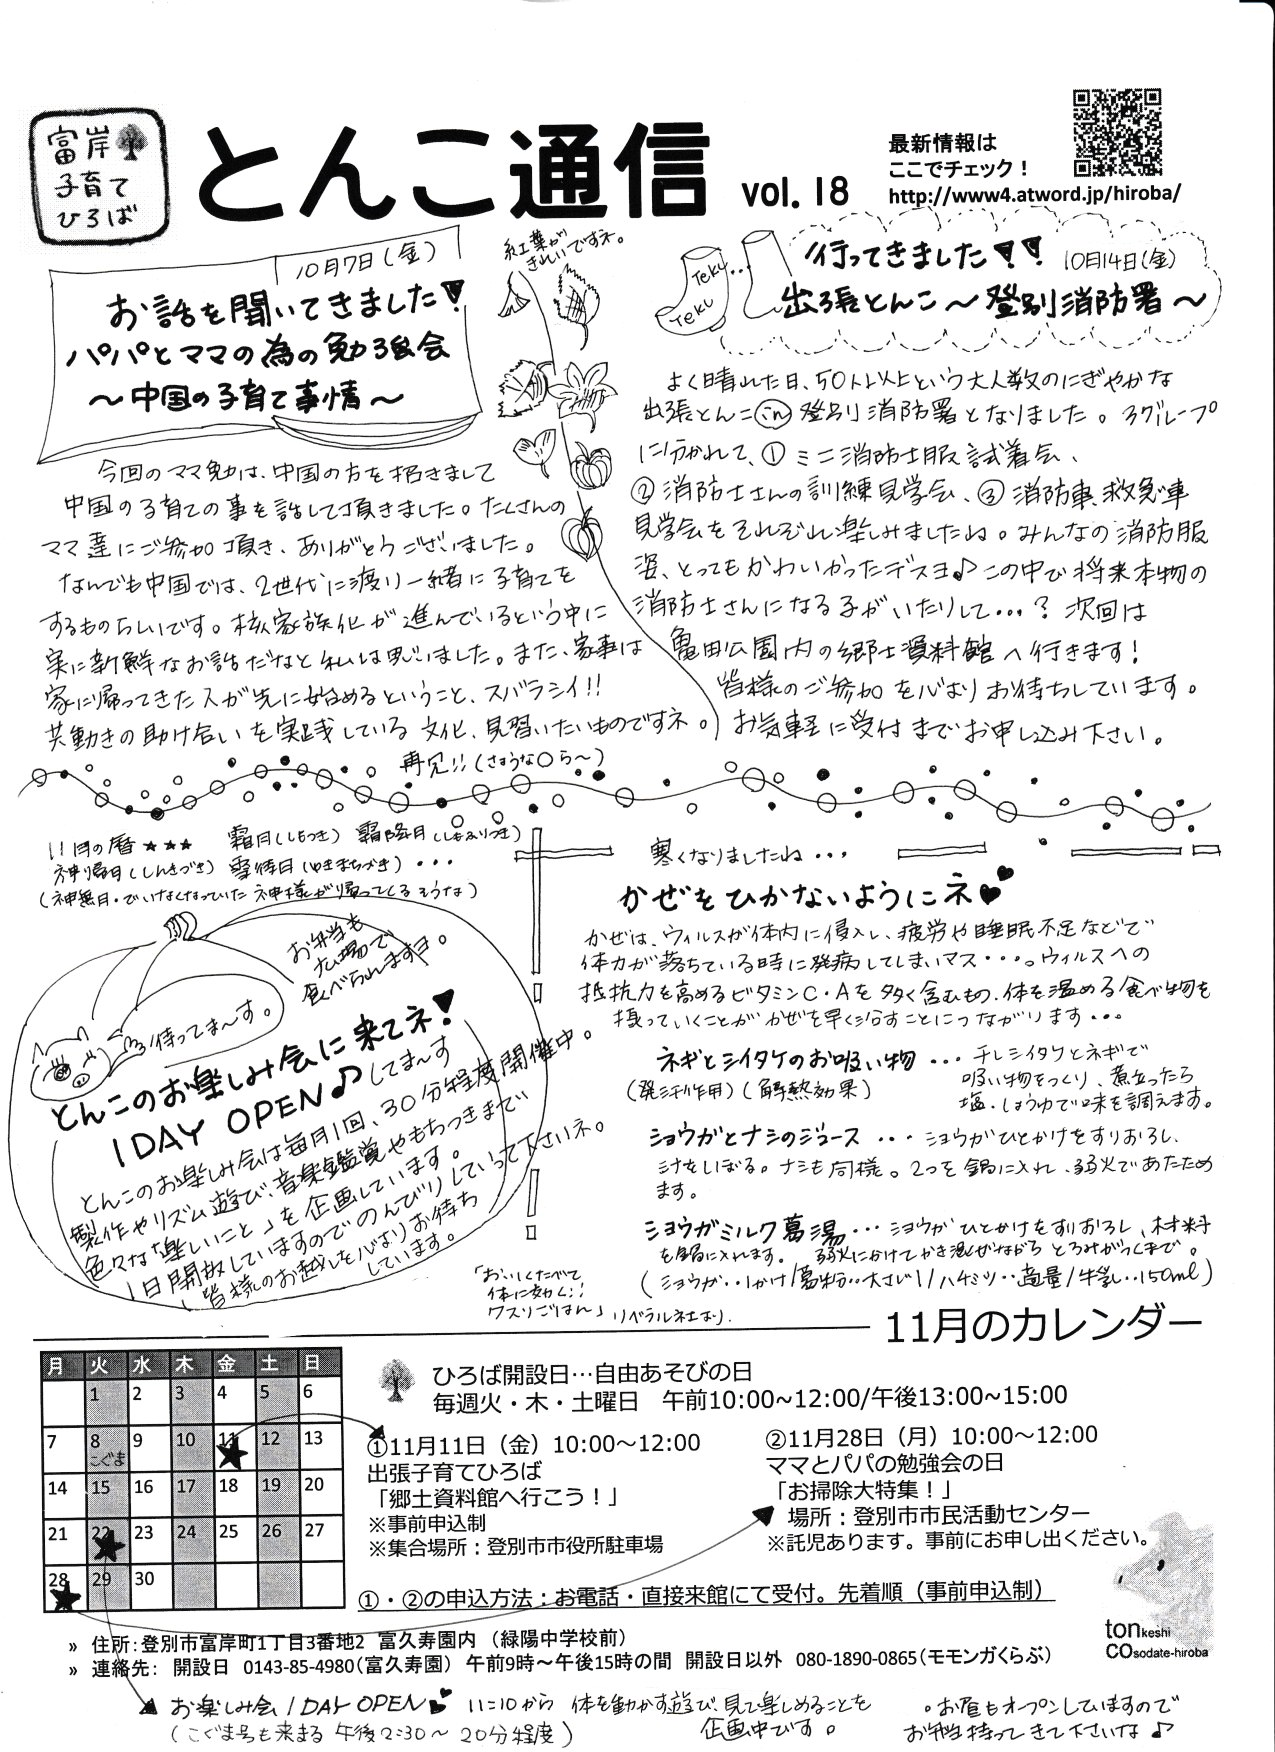 富岸
子育て
ひろば
とんこ通信 vol. 18
最新情報は
ここでチェック！
http://www4.atword.jp/hiroba/
10月7日(金)
お話を聞いてきました!
パパとママの為の勉強会
～中国の子育て事情～
今回のママ勉は、中国の方を招きまして
中国の子育ての事を話して頂きました。たくさんの
ママ達にご参加頂き、ありがとうございました。
なんでも中国では、2世代に渡り一緒に子育てを
するものらしいです。核家族化が進んでいるという中に
実に新鮮なお話だなと私は思いました。また、家事は
家に帰ってきた人が先に始めるということ、スバラシイ!!
共働きの助け合いを実践している文化、見習いたいものですネ。
再見!!(さようなOら～)
紅葉が
きれいですネ。
Teku
Teku
行ってきました!! 10月14日(金)
出張とんこ～登別消防署～
よく晴れた日、50人以上という大人数のにぎやかな
出張とんこin登別消防署となりました。3グループ
に分かれて、①ミニ消防士服試着会、
②消防士さんの訓練見学会、③消防車、救急車
見学会をそれぞれ楽しみましたね。みんなの消防服
姿、とってもかわいかったデスヨ♪この中で将来本物の
消防士さんになる子がいたりして...？次回は
亀田公園内の郷土資料館へ行きます！
皆様のご参加を心よりお待ちしています。
お気軽に受付までお申し込み下さい。
11月の暦★★★ 霜月(しもつき) 霜降月(しもふりつき)
神帰月(しんきづき) 雪待月(ゆきまちづき)・・・
(神無月・でいなくなっていた神様が帰ってくるそうな)
お弁当も
広場で
食べられますヨ。
待ってま～す。
とんこのお楽しみ会に来てネ!
1DAY OPEN♪してま～す
とんこのお楽しみ会は毎月1回、30分程度開催中。
製作やリズム遊び、音楽鑑賞やもちつきまで
色々な「楽しいこと」を企画しています。
1日開放していますのでのんびりしていって下さいネ。
皆様のお越しを心よりお待ち
しています。
寒くなりましたね...
かぜをひかないようにネ
かぜは、ウィルスが体内に侵入し、疲労や睡眠不足などで
体力が落ちている時に発病してしまいマス・・・。ウィルスへの
抵抗力を高めるビタミンC・Aを多く含むもの、体を温める食べ物を
摂っていくことがかぜを早く治すことにつながります・・・
ネギとシイタケのお吸い物・・・干しシイタケとネギで
(発汗作用)(解熱効果) 吸い物をつくり、煮立ったら
塩・しょうゆで味を調えます。
ショウガとナシのジュース・・・ショウガひとかけをすりおろし、
汁をしぼる。ナシも同様。2つを鍋に入れ、弱火であたため
ます。
ショウガミルク葛湯・・・ショウガひとかけをすりおろし、材料
を鍋に入れます。弱火にかけてかき混ぜながらとろみがつくまで。
(ショウガ・・1かけ/葛粉・・大さじ1/ハチミツ・・適量/牛乳・・150ml)
「おいしくたべて
体に効く!!
クスリごはん」リベラル社より.
11月のカレンダー
月 火 水 木 金 土 日
1 2 3 4 5 6
7 8 9 10 11 12 13
こぐま
14 15 16 17 18 19 20
21 22 23 24 25 26 27
28 29 30
ひろば開設日…自由あそびの日
毎週火・木・土曜日 午前10:00～12:00/午後13:00～15:00
①11月11日（金）10:00～12:00
出張子育てひろば
「郷土資料館へ行こう！」
※事前申込制
※集合場所：登別市市役所駐車場
②11月28日（月）10:00～12:00
ママとパパの勉強会の日
「お掃除大特集！」
場所：登別市市民活動センター
※託児あります。事前にお申し出ください。
①・②の申込方法：お電話・直接来館にて受付。先着順（事前申込制）
tonkeshi
COsodate-hiroba
» 住所：登別市富岸町1丁目3番地2 富久寿園内（緑陽中学校前）
» 連絡先： 開設日 0143-85-4980（富久寿園） 午前9時～午後15時の間 開設日以外 080-1890-0865（モモンガくらぶ）
お楽しみ会1DAY OPEN 11:10から 体を動かす遊び、見て楽しめることを
企画中です。
(こぐま号も来まる 午後2:30～20分程度)
。お昼もオープンしていますので
お弁当持ってきて下さいな♪